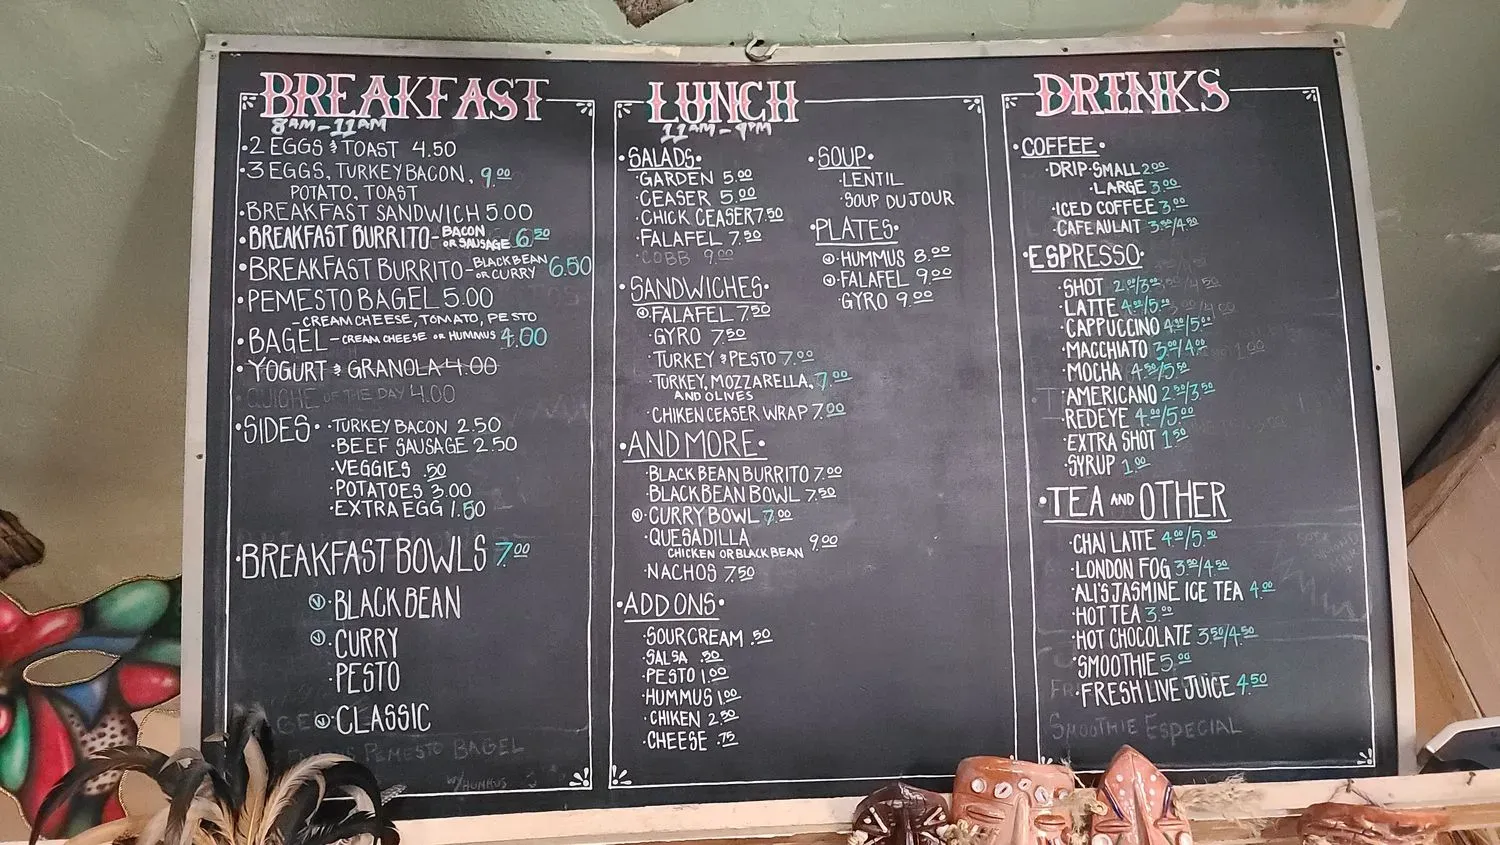 BREAKFAST
8AM-11AM
·2 EGGS & TOAST 4.50
·3 EGGS, TURKEY BACON, 9.00
POTATO, TOAST
·BREAKFAST SANDWICH 5.00
·BREAKFAST BURRITO- BACON OR SAUSAGE 6.50
·BREAKFAST BURRITO- BLACK BEAN OR CURRY 6.50
·PEMESTO BAGEL 5.00
-CREAM CHEESE, TOMATO, PESTO
·BAGEL-CREAM CHEESE OR HUMMUS 4.00
·YOGURT & GRANOLA 4.00
·QUICHE OF THE DAY 4.00
·SIDES· ·TURKEY BACON 2.50
·BEEF SAUSAGE 2.50
·VEGGIES .50
·POTATOES 3.00
·EXTRA EGG 1.50
·BREAKFAST BOWLS 7.00
V·BLACK BEAN
V·CURRY
·PESTO
V·CLASSIC
PEMESTO BAGEL
W/HUMMUS
LUNCH
11AM-9PM
·SALADS·
·GARDEN 5.00
·CEASER 5.00
·CHICK CEASER 7.50
·FALAFEL 7.50
·COBB 9.00
·SANDWICHES·
V·FALAFEL 7.50
·GYRO 7.50
·TURKEY & PESTO 7.00
·TURKEY, MOZZARELLA, 7.00
AND OLIVES
·CHIKEN CEASER WRAP 7.00
·AND MORE·
·BLACK BEAN BURRITO 7.00
·BLACK BEAN BOWL 7.50
V·CURRY BOWL 7.00
·QUESADILLA 9.00
CHICKEN OR BLACK BEAN
·NACHOS 7.50
·ADD ONS·
·SOUR CREAM .50
·SALSA .50
·PESTO 1.00
·HUMMUS 1.00
·CHIKEN 2.50
·CHEESE .75
·SOUP·
·LENTIL
·SOUP DU JOUR
·PLATES·
V·HUMMUS 8.00
V·FALAFEL 9.00
·GYRO 9.00
DRINKS
·COFFEE·
·DRIP·SMALL 2.00
·LARGE 3.00
·ICED COFFEE 3.00
·CAFE AU LAIT 3.50/4.50
·ESPRESSO·
·SHOT 2.00/3.00
·LATTE 4.00/5.00
·CAPPUCCINO 4.00/5.00
·MACCHIATO 3.00/4.00
·MOCHA 4.50/5.50
·AMERICANO 2.50/3.50
·REDEYE 4.00/5.00
·EXTRA SHOT 1.50
·SYRUP 1.00
·TEA AND OTHER
·CHAI LATTE 4.00/5.00
·LONDON FOG 3.50/4.50
·ALI'S JASMINE ICE TEA 4.00
·HOT TEA 3.00
·HOT CHOCOLATE 3.50/4.50
·SMOOTHIE 5.00
·FRESH LIVE JUICE 4.50
SMOOTHIE ESPECIAL